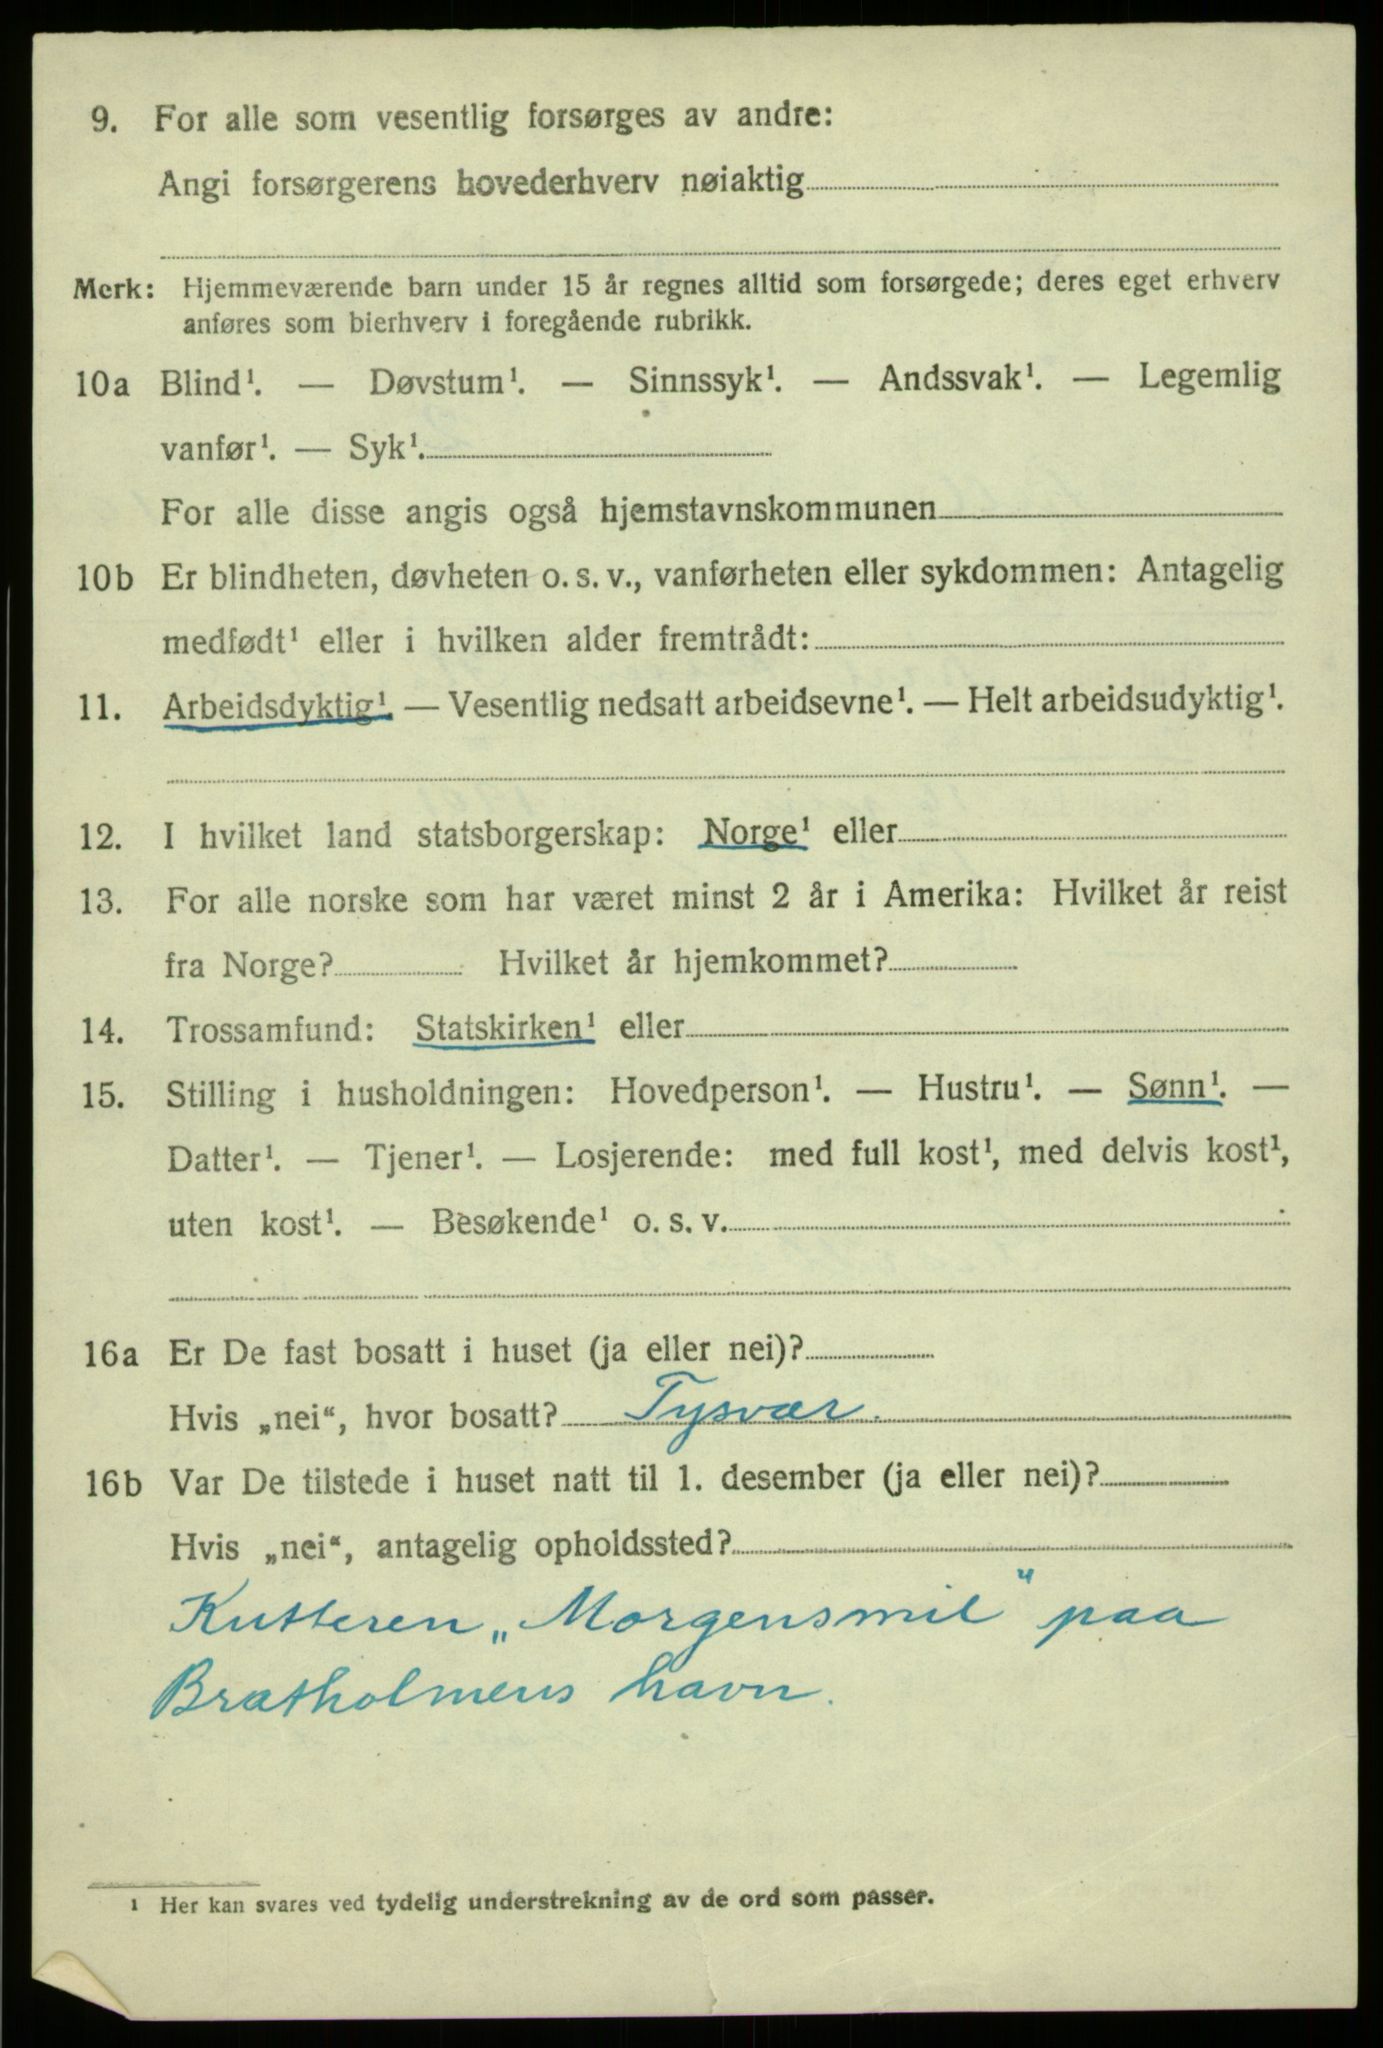 9. For alle som vesentlig forsørges av andre:
Angi forsørgerens hovederhverv nøiaktig
Merk: Hjemmeværende barn under 15 år regnes alltid som forsørgede; deres eget erhverv
anføres som bierhverv i foregående rubrikk.
10a Blind¹. — Døvstum¹. — Sinnssyk¹. — Andssvak¹. — Legemlig
vanfør¹. — Syk¹.
For alle disse angis også hjemstavnskommunen
10b Er blindheten, døvheten o. s. v., vanførheten eller sykdommen: Antagelig
medfødt¹ eller i hvilken alder fremtrådt:
11. Arbeidsdyktig¹. — Vesentlig nedsatt arbeidsevne¹. — Helt arbeidsudyktig¹.
12. I hvilket land statsborgerskap: Norge¹ eller
13. For alle norske som har været minst 2 år i Amerika: Hvilket år reist
fra Norge? Hvilket år hjemkommet?
14. Trossamfund: Statskirken¹ eller
15. Stilling i husholdningen: Hovedperson¹. — Hustru¹. — Sønn¹. —
Datter¹. — Tjener¹. — Losjerende: med full kost¹, med delvis kost¹,
uten kost¹. — Besøkende¹ o. s. v.
16a Er De fast bosatt i huset (ja eller nei)?
Hvis „nei“, hvor bosatt? Tysvær.
16b Var De tilstede i huset natt til 1. desember (ja eller nei)?
Hvis „nei“, antagelig opholdssted?
Kutteren „Morgensmil" paa
Bratholmens havn.
¹ Her kan svares ved tydelig understrekning av de ord som passer.